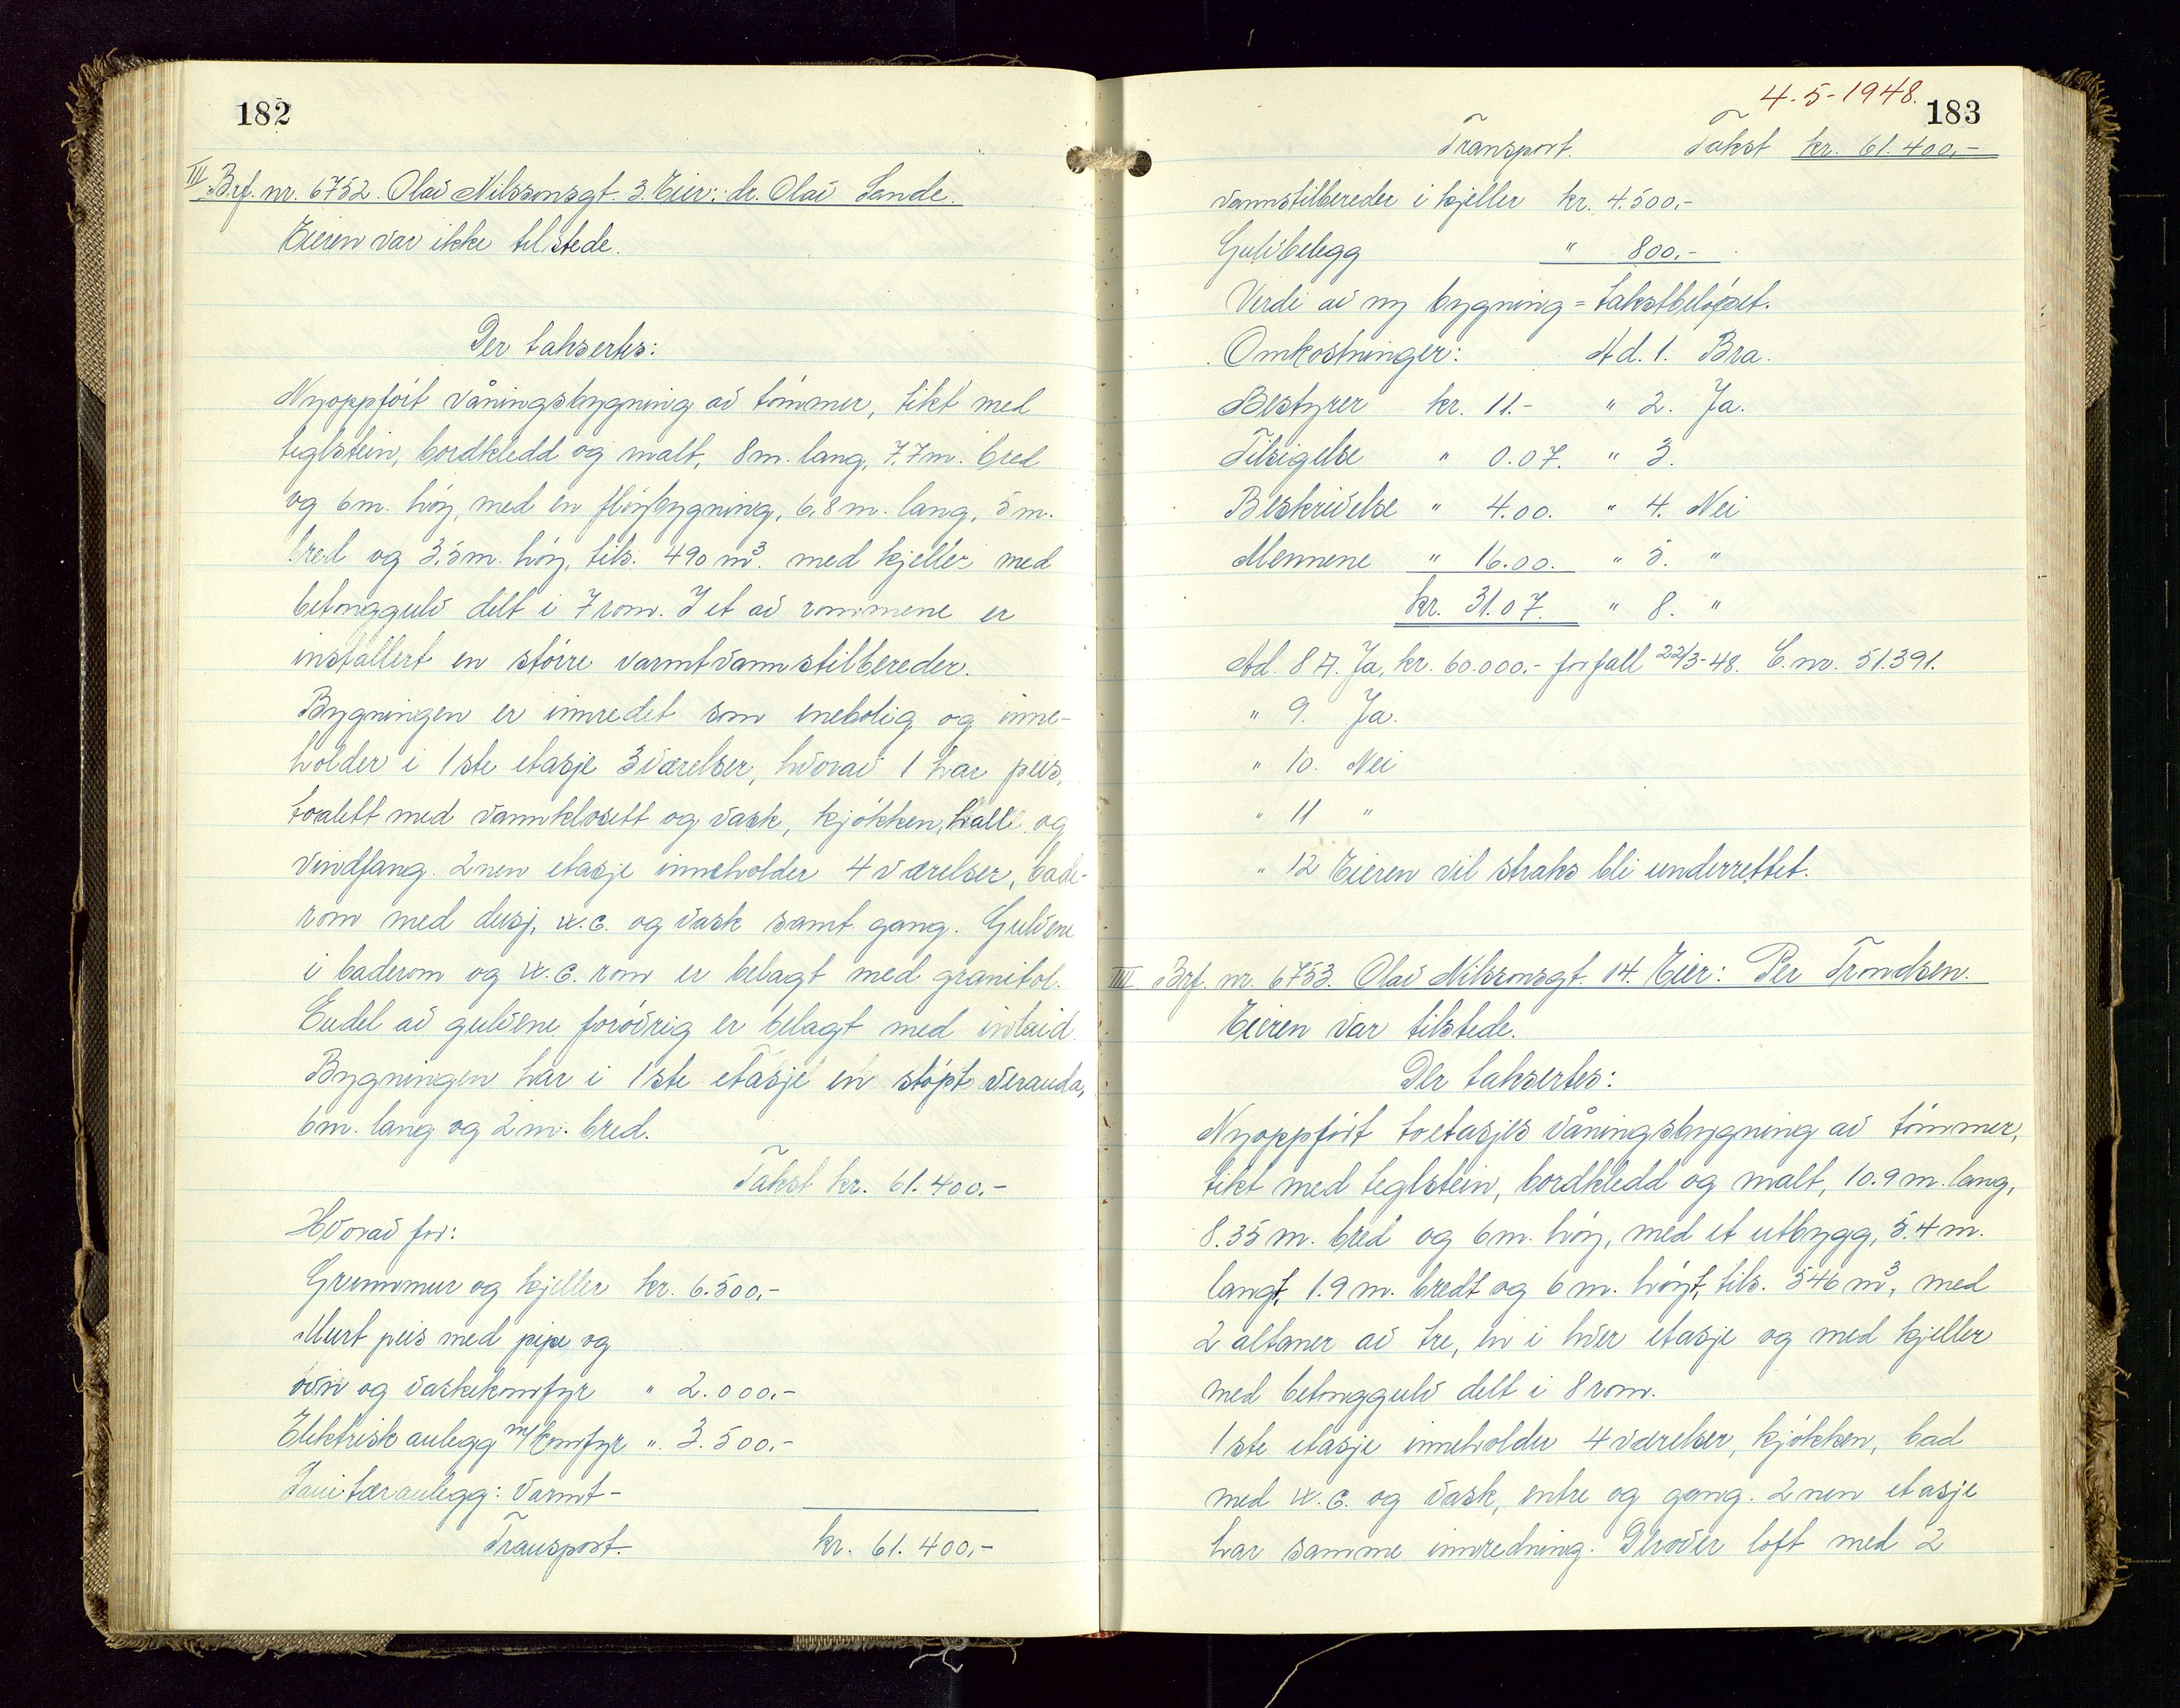 182
III Brf. nr. 6752. Olav Nilssonsgt. 3 Eier: dr. Olav Sande.
Eieren var ikke tilstede.
Der taksertes:
Nyoppført våningsbygning av tømmer, tekt med
teglstein, bordkledd og malt, 8 m. lang, 7.7 m. bred
og 6 m. høy, med en fløybygning, 6,8 m. lang, 5 m.
bred og 3,5 m. høy, tils. 490 m³. med kjeller med
betonggulv delt i 7 rom. I et av rommene er
installert en større varmtvannstilbereder.
Bygningen er innredet som enebolig og inne-
holder i 1ste etasje 3 værelser, hvorav 1 har peis,
toalett med vannklosett og vask, kjøkken, hall og
vindfang. 2nen etasje inneholder 4 værelser, bade-
rom med dusj, w.c. og vask samt gang. Gulvene
i baderom og w.c. rom er belagt med granitol.
Endel av gulvene forøvrig er belagt med inlaid.
Bygningen har i 1ste etasje en støpt veranda,
6 m. lang og 2 m. bred.
Takst kr. 61.400.-
Hvorav for:
Grunnmur og kjeller kr. 6.500.-
Murt peis med pipe og
ovn og vaskekomfyr " 2.000.-
Elektrisk anlegg m/komfyr " 3.500.-
Sanitæranlegg: varmt-
Transport. kr. 61.400,-
4-5-1948.
183
Transport. Takst kr. 61.400,-
vannstilbereder i kjeller kr. 4.500.-
Gulvbelegg " 800.-
Verdi av ny bygning = takstbeløpet.
Omkostninger: Ad. 1. Bra.
Bestyrer kr. 11.- " 2. Ja.
Tilsigelse " 0.07. " 3.
Beskrivelse " 4.00. " 4. Nei
Mennene " 16.00. " 5. "
kr. 31.07. " 8. "
Ad. 8 A. Ja, kr. 60.000.- forfall 22/3-48. C. nr. 51.391.
" 9. Ja.
" 10. Nei
" 11 "
" 12 Eieren vil straks bli underrettet.
IIII Brf. nr. 6753. Olav Nilssonsgt. 14. Eier: Per Trondsen.
Eieren var tilstede.
Der taksertes:
Nyoppført toetasjes våningsbygning av tømmer,
tekt med teglstein, bordkledd og malt, 10.9 m. lang,
8.35 m. bred og 6 m. høy, med et utbygg, 5.4 m.
langt, 1.9 m. bredt og 6 m. høyt, tils. 546 m³, med
2 altaner av tre, en i hver etasje og med kjeller
med betonggulv delt i 8 rom.
1ste etasje inneholder 4 værelser, kjøkken, bad
med w.c. og vask, entre og gang. 2nen etasje
har samme innredning. Derover loft med 2